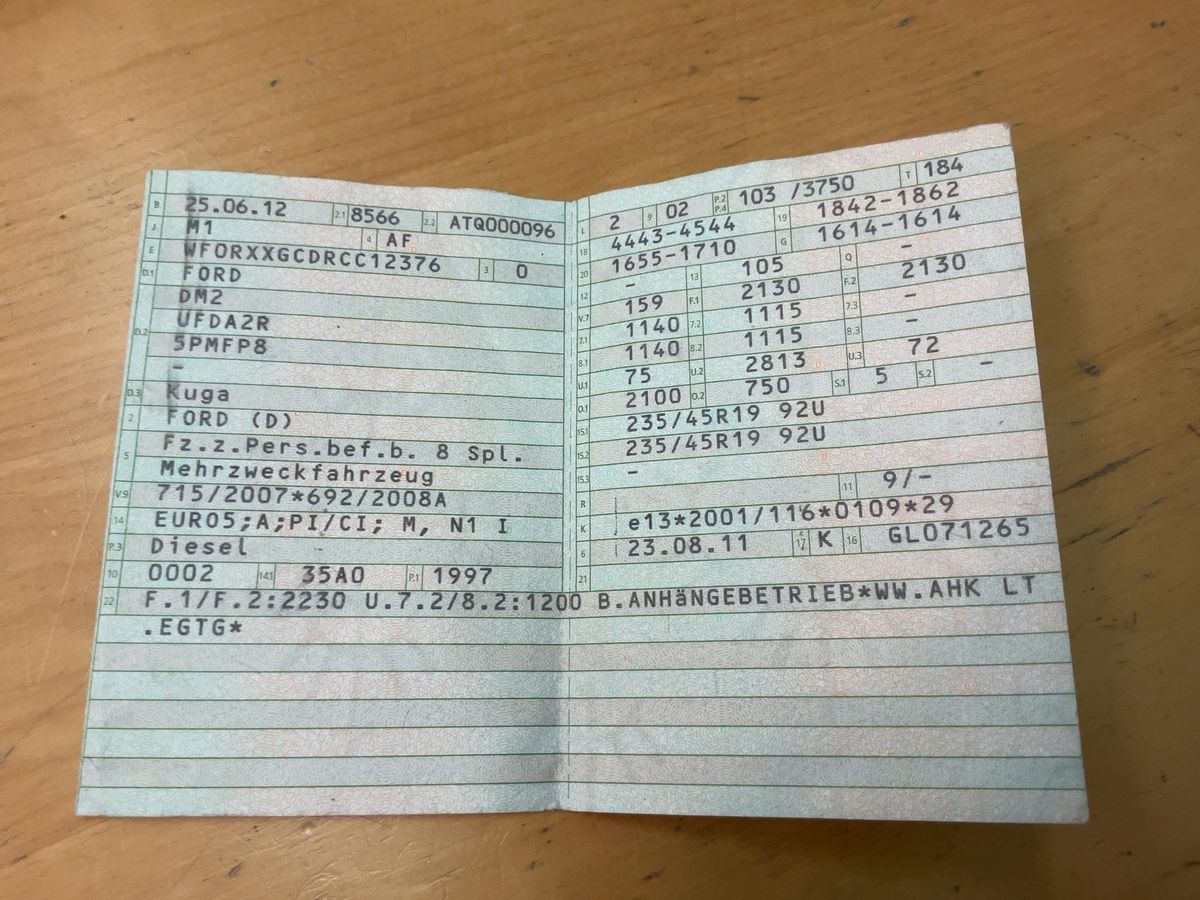 B 25.06.12 2.1 8566 2.2 ATQ000096
J M1 4 AF
E WF0RXXGCDRCC12376 3 0
D.1 FORD
DM2
D.2 UFDA2R
5PMFP8
-
D.3 Kuga
2 FORD (D)
5 Fz.z.Pers.bef.b. 8 Spl.
Mehrzweckfahrzeug
V.9 715/2007*692/2008A
14 EURO5;A;PI/CI; M, N1 I
P.3 Diesel
10 0002 14.1 35A0 P.1 1997
L 2 9 02 P.2 P.4 103 /3750 T 184
18 4443-4544 19 1842-1862
20 1655-1710 G 1614-1614
12 - 13 105 Q -
V.7 159 F.1 2130 F.2 2130
7.1 1140 7.2 1115 7.3 -
8.1 1140 8.2 1115 8.3 -
U.1 75 U.2 2813 U.3 72
O.1 2100 O.2 750 S.1 5 S.2 -
15.1 235/45R19 92U
15.2 235/45R19 92U
15.3 -
R 11 9/-
K e13*2001/116*0109*29
6 23.08.11 17 K 16 GL071265
21
22 F.1/F.2:2230 U.7.2/8.2:1200 B.ANHäNGEBETRIEB*WW.AHK LT
.EGTG*